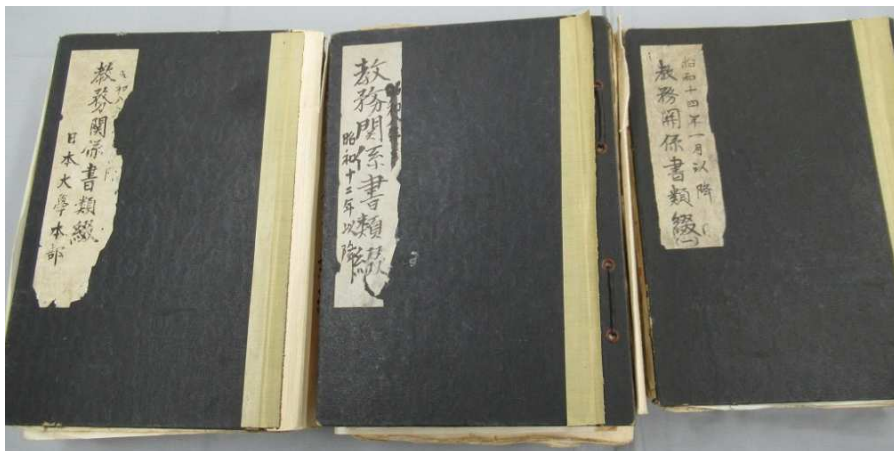 教務關係書類綴
日本大學本部
教務関係書類綴
昭和十二年以降
昭和十四年一月以降
教務関係書類綴(一)